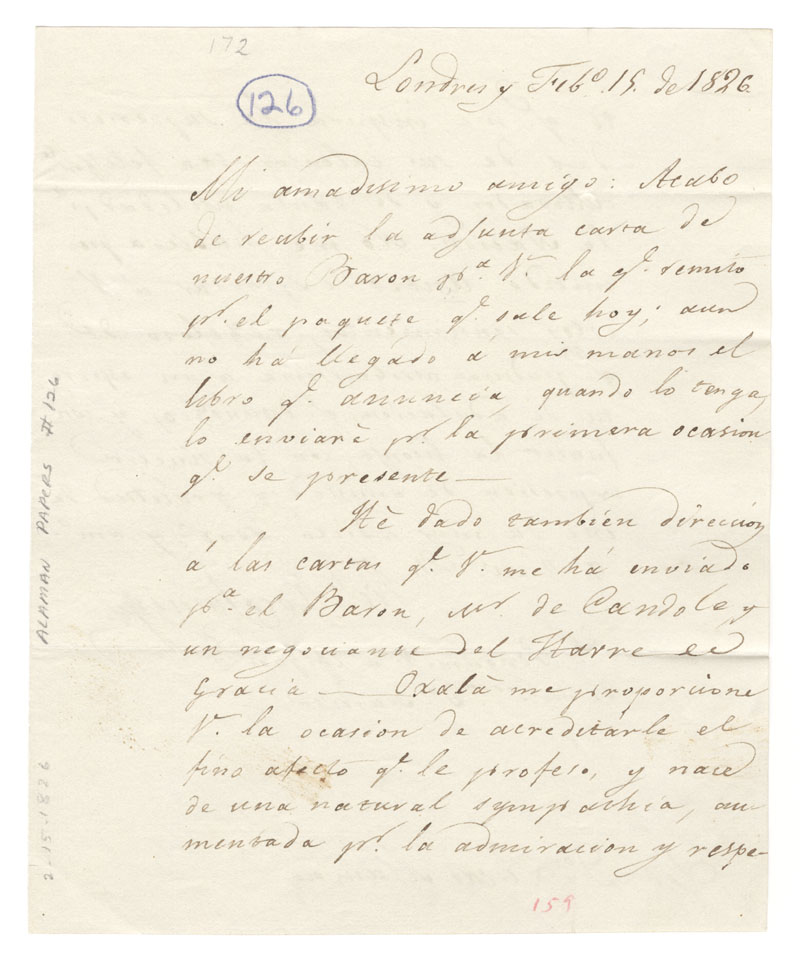 172
126
Londres y Feb.º 15. de 1826.
Mi amadisimo amigo: Acabo
de recibir la adjunta carta de
nuestro Baron p.ª V. la q.e remito
p.r el paquete q.e sale hoy; aun
no há llegado á mis manos el
libro q.e anuncia, quando lo tenga,
lo enviaré p.r la primera ocasion
q.e se presente —
Hé dado tambien direccion
á las cartas q.e V. me há enviado
p.ª el Baron, Mr. de Candole, y
un negociante del Havre de
Gracia — Oxalá me proporcione
V. la ocasion de acreditárle el
fino afecto q.e le profeso, y nace
de una natural sympathia, au
mentada p.r la admiracion y respe-
159
ALAMAN PAPERS # 126
2-15-1826